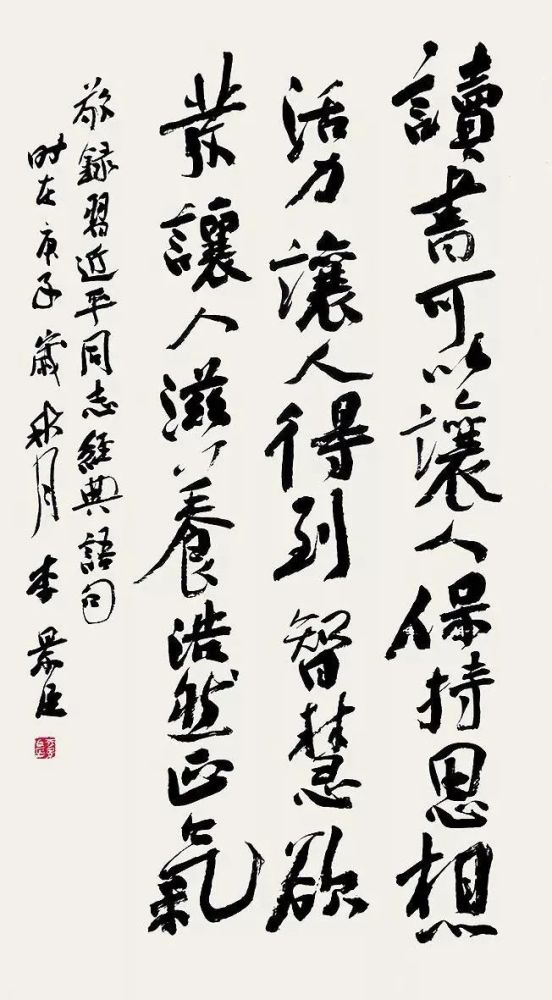 讀書可以讓人保持思想
活力讓人得到智慧啟
發讓人滋養浩然正氣
敬録習近平同志經典語句
时在庚子歲秋月李